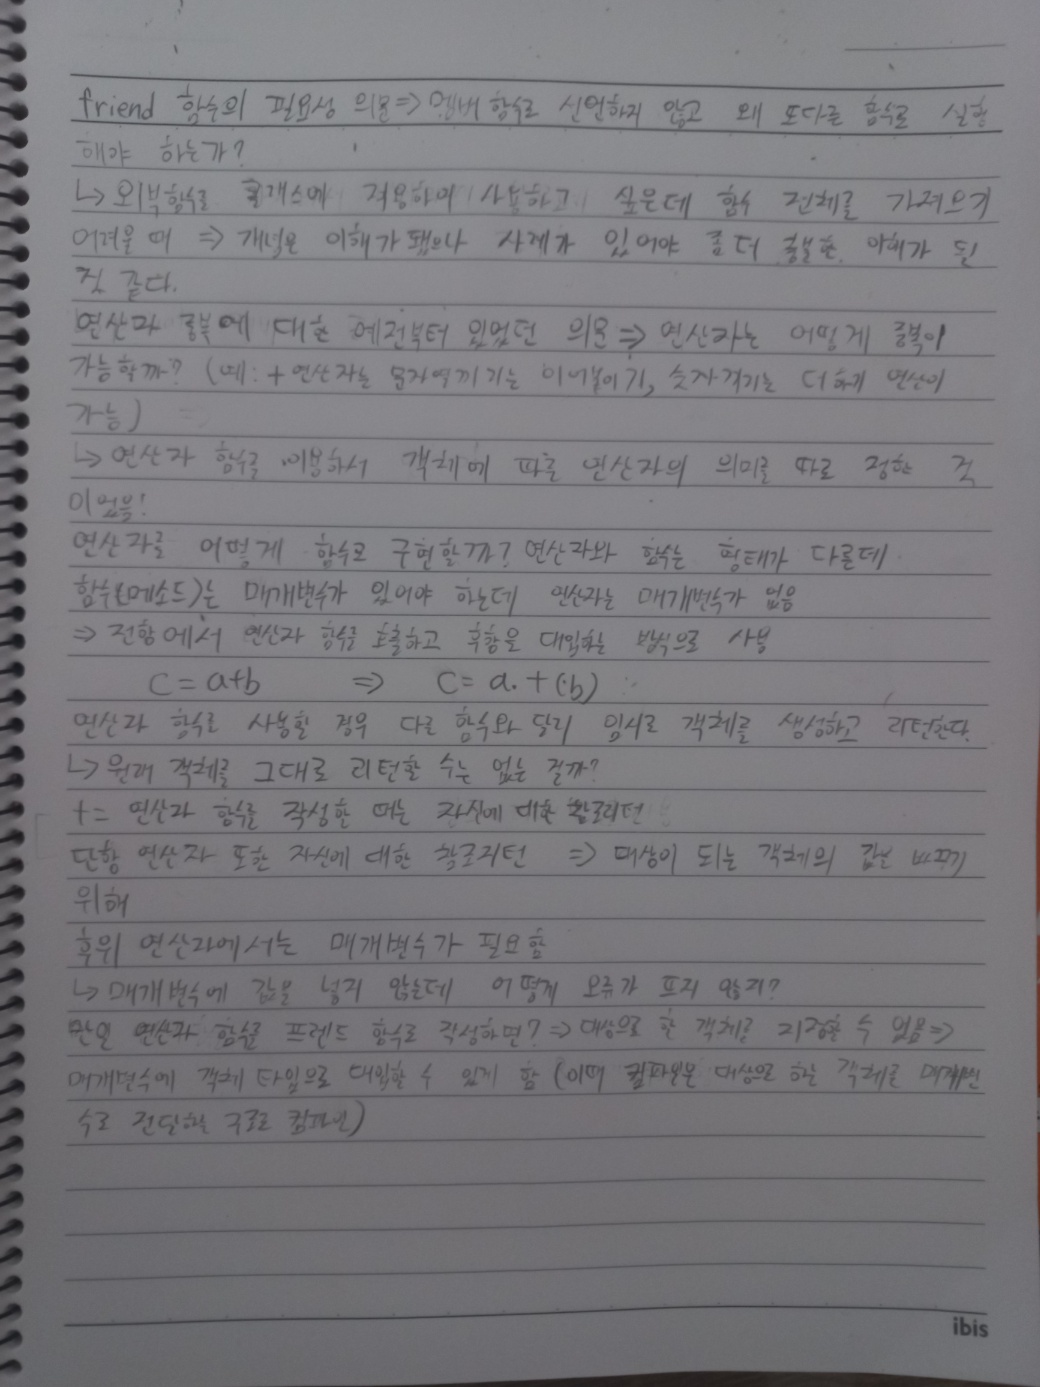 friend 함수의 필요성 의문 ⇒ 멤버 함수로 선언하지 않고 왜 또다른 함수로 실행
해야 하는가?
↳ 외부함수를 클래스에 적용하여 사용하고 싶은데 함수 전체를 가져오기
어려울 때 ⇒ 개념은 이해가 됐으나 사례가 있어야 좀더 충분한 이해가 될
것 같다.
연산자 중복에 대한 예전부터 있었던 의문 ⇒ 연산자는 어떻게 중복이
가능할까? (예: + 연산자는 문자열끼리는 이어붙이기, 숫자끼리는 더하기 연산이
가능)
↳ 연산자 함수를 이용해서 객체에 따른 연산자의 의미를 따로 정한 것
이었음!
연산자를 어떻게 함수로 구현할까? 연산자와 함수는 형태가 다른데
함수(메소드)는 매개변수가 있어야 하는데 연산자는 매개변수가 없음
⇒ 전항에서 연산자 함수를 호출하고 후항을 대입하는 방식으로 사용
C = a+b ⇒ C = a. + (b)
연산자 함수를 사용할 경우 다른 함수와 달리 임시로 객체를 생성하고 리턴한다.
↳ 원래 객체를 그대로 리턴할 수는 없는 걸까?
+= 연산자 함수를 작성할 때는 자신에 대한 참조리턴
단항 연산자 또한 자신에 대한 참조리턴 ⇒ 대상이 되는 객체의 값을 바꾸기
위해
후위 연산자에서는 매개변수가 필요함
↳ 매개변수에 값을 넣지 않는데 어떻게 오류가 뜨지 않지?
만일 연산자 함수를 프렌드 함수로 작성하면? ⇒ 대상으로 할 객체를 지정할 수 없음 ⇒
매개변수에 객체 타입으로 대입할 수 있게 함 (이때 컴파일은 대상으로 하는 객체를 매개변
수로 전달하는 구조로 컴파일)
ibis